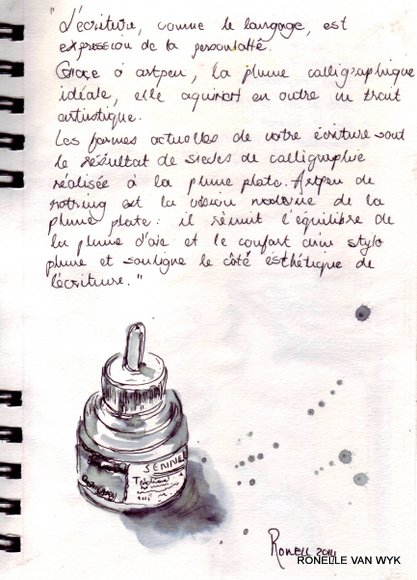 "L'écriture, comme le langage, est
expression de la personalité.
Grace à artpen, la plume calligraphique
idéale, elle aquiert en outre un trait
artistique.
Les formes actuelles de votre écriture sont
le résultat de siecles de calligraphie
réalisée à la plume plate. Artpen de
rotring est la version moderne de la
plume plate: il réunit l'équilibre de
la plume d'oie et le confort d'un stylo
plume et souligne le côté esthétique de
l'écriture."
SENNEL
RONELL 2011
RONELLE VAN WYK